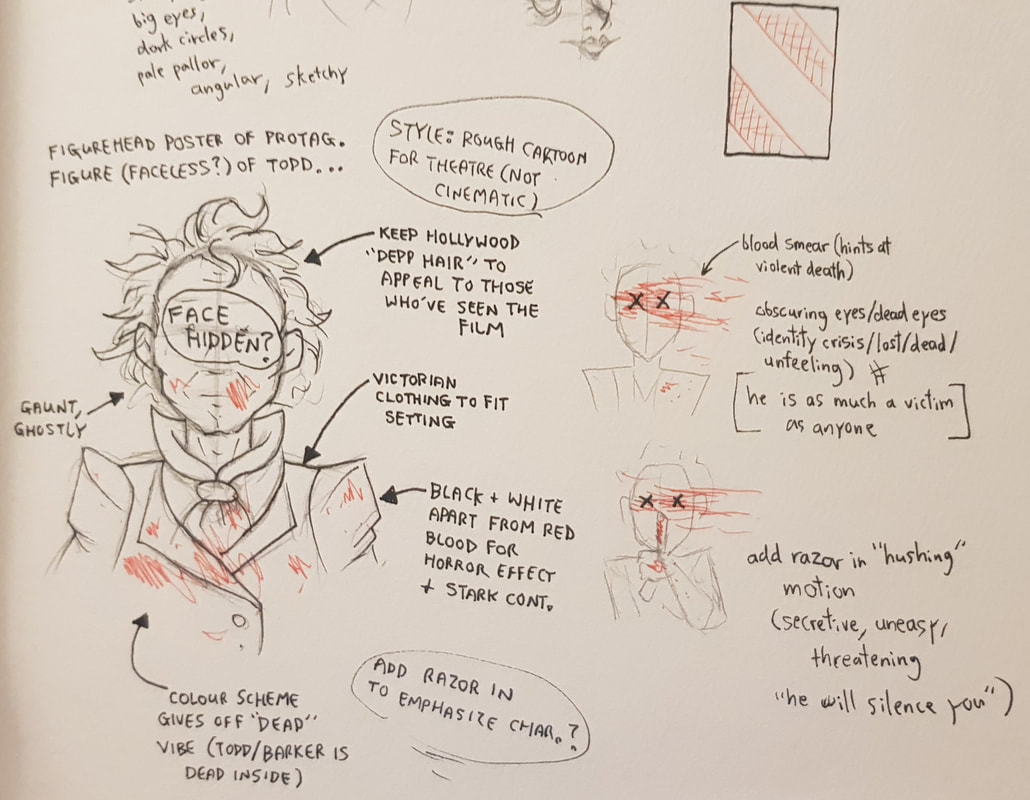 big eyes,
dark circles,
pale pallor,
angular, sketchy
FIGUREHEAD POSTER OF PROTAG.
FIGURE (FACELESS?) OF TODD...
STYLE: ROUGH CARTOON
FOR THEATRE (NOT
CINEMATIC)
KEEP HOLLYWOOD
"DEPP HAIR" TO
APPEAL TO THOSE
WHO'VE SEEN THE
FILM
FACE
HIDDEN?
GAUNT,
GHOSTLY
VICTORIAN
CLOTHING TO FIT
SETTING
BLACK + WHITE
APART FROM RED
BLOOD FOR
HORROR EFFECT
+ STARK CONT.
COLOUR SCHEME
GIVES OFF "DEAD"
VIBE (TODD/BARKER IS
DEAD INSIDE)
ADD RAZOR IN
TO EMPHASIZE CHAR.?
blood smear (hints at
violent death)
obscuring eyes/dead eyes
(identity crisis/lost/dead/
unfeeling) #
[he is as much a victim
as anyone]
add razor in "hushing"
motion
(secretive, uneasy,
threatening
"he will silence you")